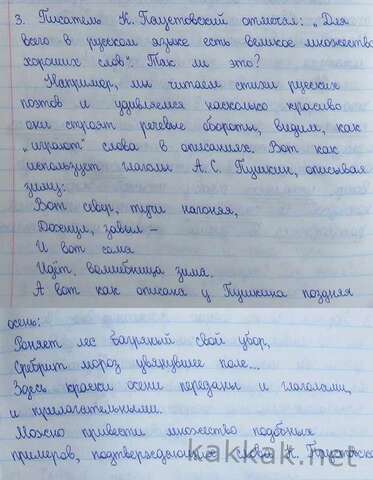 3. Писатель К. Паустовский отмечал: „Для
всего в русском языке есть великое множество
хороших слов". Так ли это?
Например, мы читаем стихи русских
поэтов и удивляемся насколько красиво
они строят речевые обороты, видим, как
„играют" слова в описаниях. Вот как
использует глаголы А. С. Пушкин, описывая
зиму:
Вот север, тучи нагоняя,
Дохнул, завыл –
И вот сама
Идёт, волшебница зима.
А вот как описана у Пушкина поздняя
осень:
Роняет лес багряный свой убор,
Сребрит мороз увянувшее поле...
Здесь краски осени переданы и глаголами,
и прилагательными.
Можно привести множество подобных
примеров, подтверждающих слова К.
kakkak.net